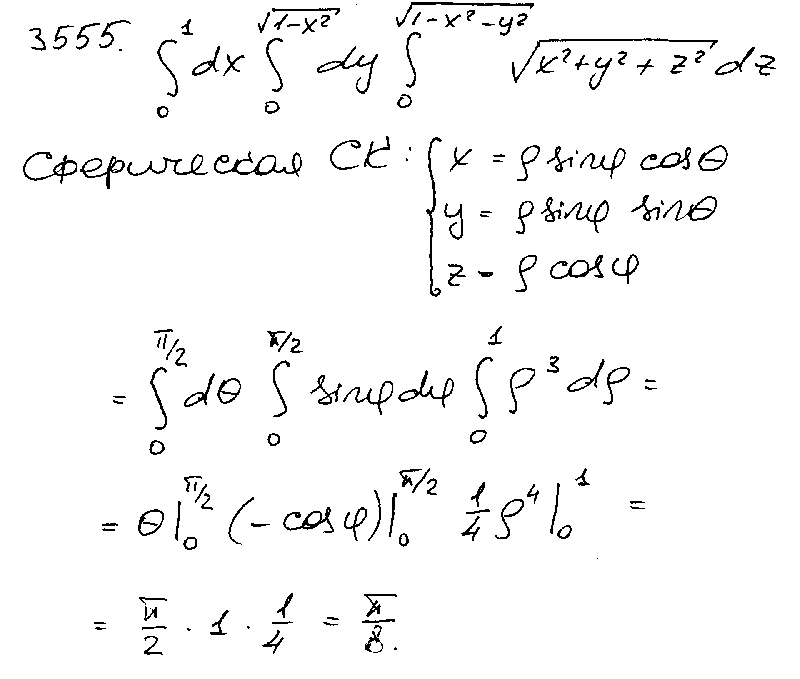 3555. ∫₀¹ dx ∫₀^√(1-x²) dy ∫₀^√(1-x²-y²) √(x²+y²+z²) dz
Сферическая СК: { x = ρ sinφ cosθ
y = ρ sinφ sinθ
z - ρ cosφ
= ∫₀^π/2 dθ ∫₀^π/2 sinφ dφ ∫₀¹ ρ³ dρ =
= θ|₀^π/2 (-cosφ)|₀^π/2 1/4 ρ⁴|₀¹ =
= π/2 · 1 · 1/4 = π/8.